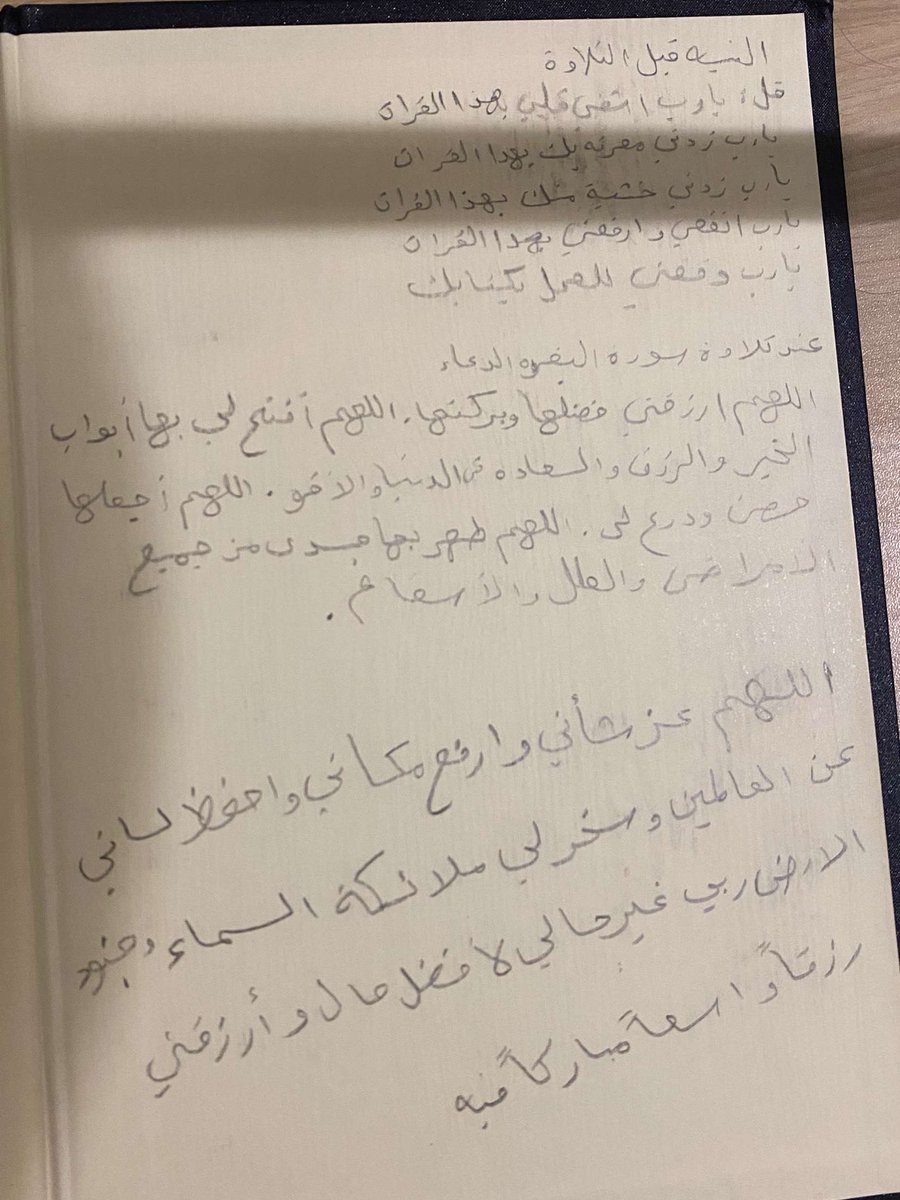 النيه قبل التلاوة
قل: يارب اشفي قلبي بهذا القران
يارب زدني معرفه بك بهذا القران
يارب زدني خشية منك بهذا القران
يارب انفعني وارفعني بهذا القران
يارب وفقني للعمل بكتابك
عند تلاوة سورة البقره الدعاء
اللهم ارزقني فضلها وبركتها. اللهم أفتح لي بها أبواب
الخير والرزق والسعاده في الدنيا والاخره. اللهم أجعلها
حصن ودرع لي. اللهم طهر بها جسدي من جميع
الامراض والعلل والأسقام.
اللهم عز شأني وارفع مكاني واحفظ لساني
عن العالمين وسخر لي ملائكة السماء وجنود
الارض ربي غير حالي لأفضل حال وأرزقني
رزقاً واسعاً مباركاً فيه